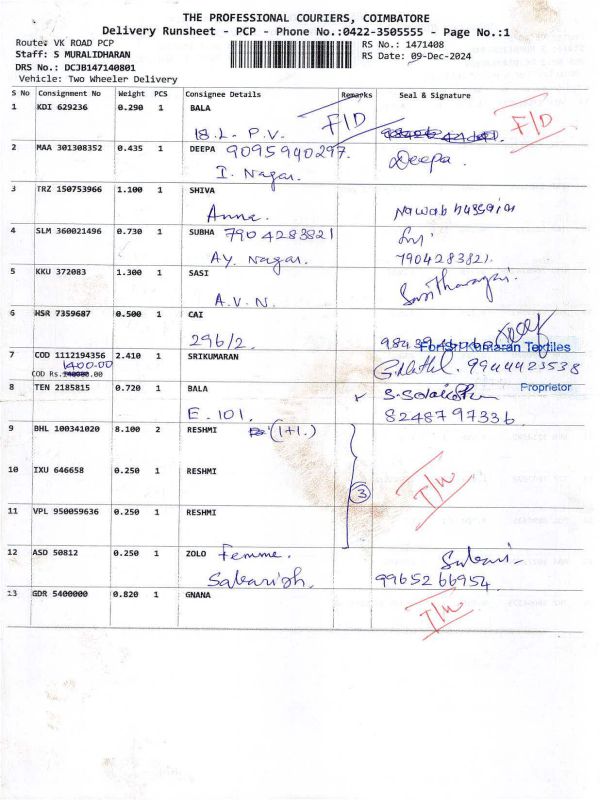 THE PROFESSIONAL COURIERS, COIMBATORE
Delivery Runsheet - PCP - Phone No.:0422-3505555 - Page No.:1
Route: VK ROAD PCP
RS No.: 1471408
Staff: S MURALIDHARAN
RS Date: 09-Dec-2024
DRS No.: DCJB147140801
Vehicle: Two Wheeler Delivery
S No Consignment No Weight PCS Consignee Details Remarks Seal & Signature
1 KDI 629236 0.290 1 BALA F/D F/D
18. L. P.V.
2 MAA 301308352 0.435 1 DEEPA 9095940297. Deepa.
I. Nagar.
3 TRZ 150753966 1.100 1 SHIVA
Anna. Nawab hussain
4 SLM 360021496 0.730 1 SUBHA 7904283821
Ay. Nagar. 7904283821.
5 KKU 372083 1.300 1 SASI
A.V.N.
6 HSR 7359687 0.500 1 CAI
296/2.
For Sri Kumaran Textiles
7 COD 1112194356 2.410 1 SRIKUMARAN
1400.00 9944423538
COD Rs.
Proprietor
8 TEN 2185815 0.720 1 BALA
E. 101. 8248797336
9 BHL 100341020 8.100 2 RESHMI (1+1.)
10 IXU 646658 0.250 1 RESHMI 3 T/W
11 VPL 950059636 0.250 1 RESHMI
12 ASD 50812 0.250 1 ZOLO Femme. Sabari
Sabarish. 9965266954
13 GDR 5400000 0.820 1 GNANA T/W